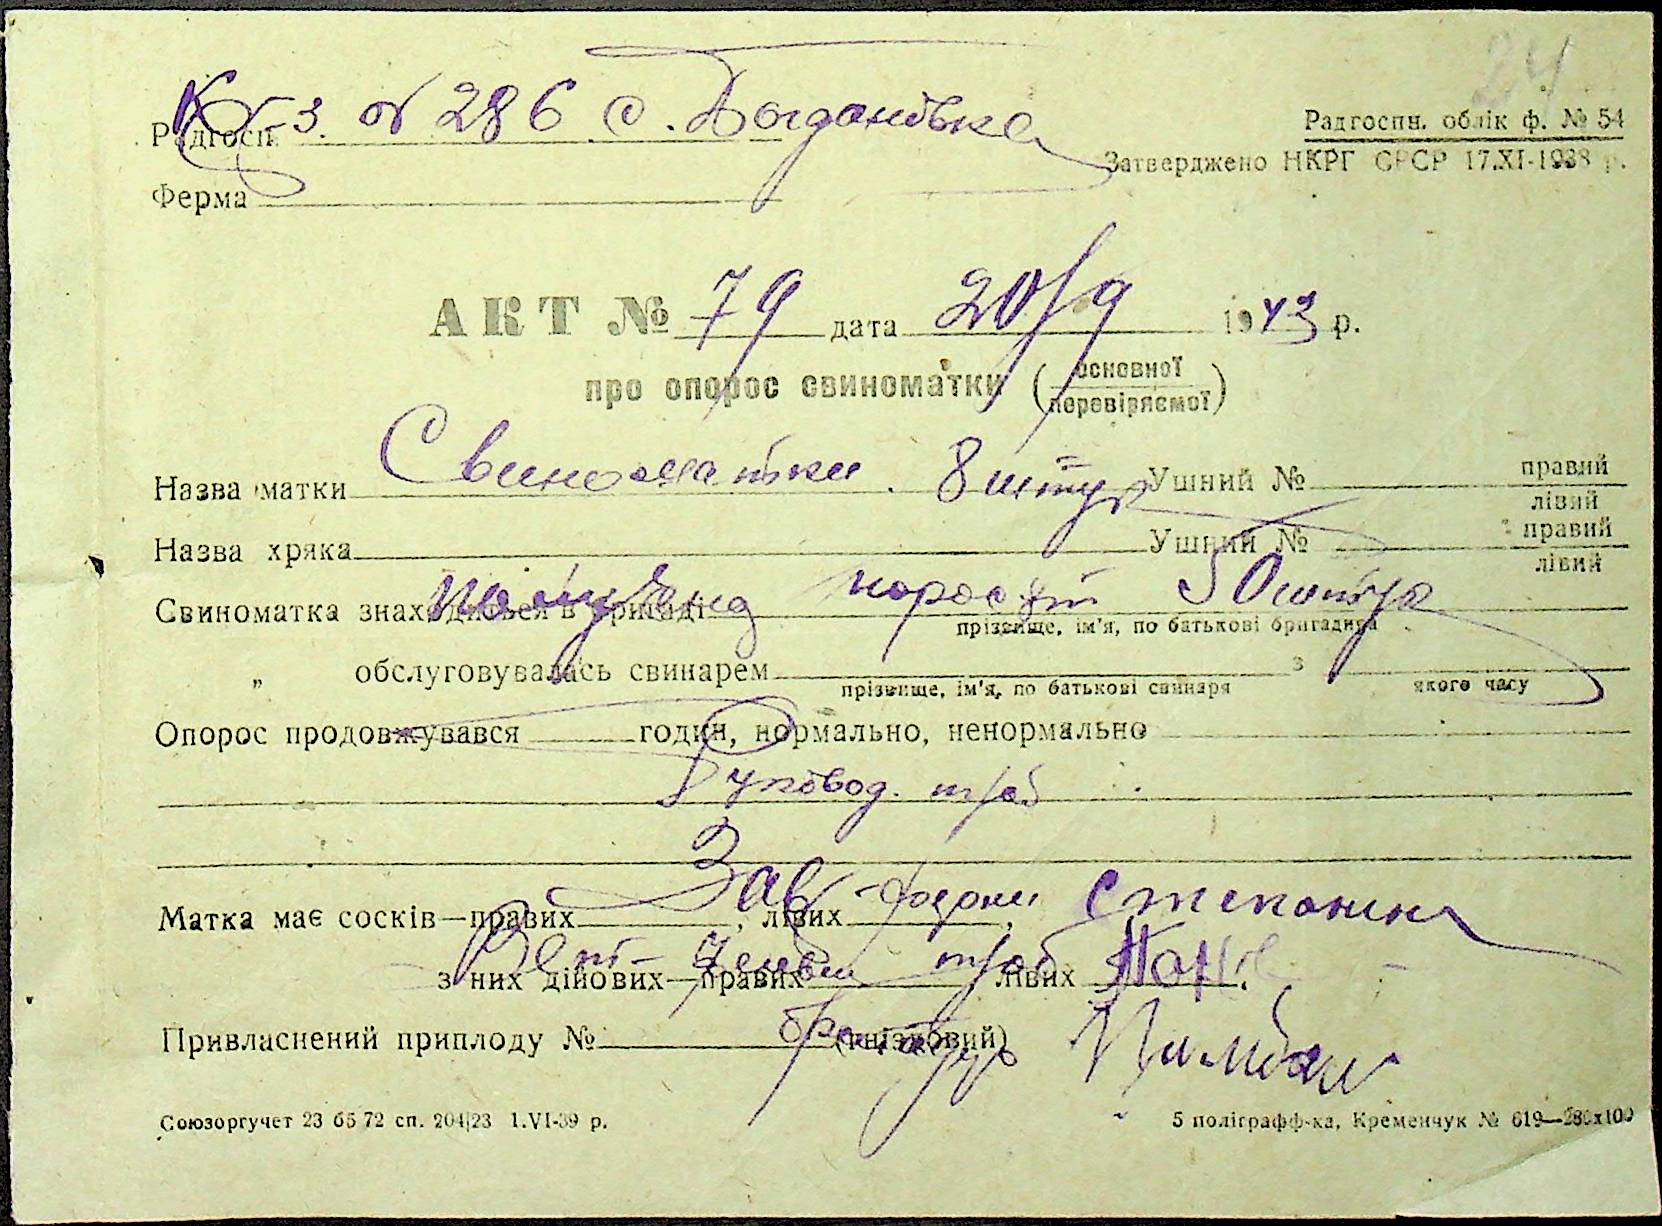 24
К-з № 286 с. Богдановка
Радгосп
Радгоспн. облік ф. № 54
Затверджено НКРГ СРСР 17.XI-1938 р.
Ферма
АКТ № 79 дата 20/9 1943 р.
про опорос свиноматки (основної
перевіряємої)
Назва матки Свиноматки 8 штук Ушний № правий
лівий
Назва хряка Ушний № правий
лівий
Свиноматка знаходиться в бригаді поросят 50 штук
прізвище, ім'я, по батькові бригадира
„ обслуговувалась свинарем з
прізвище, ім'я, по батькові свинаря якого часу
Опорос продовжувався годин, нормально, ненормально
Руковод.
Зав. ферми Степанин
Матка має сосків—правих , лівих ,
з них дійових—правих лівих .
Привласнений приплоду № (гніздовий)
бригадир
Союзоргучет 23 б5 72 сп. 204|23 1.VI-39 р.
5 поліграфф-ка, Кременчук № 619—280х100